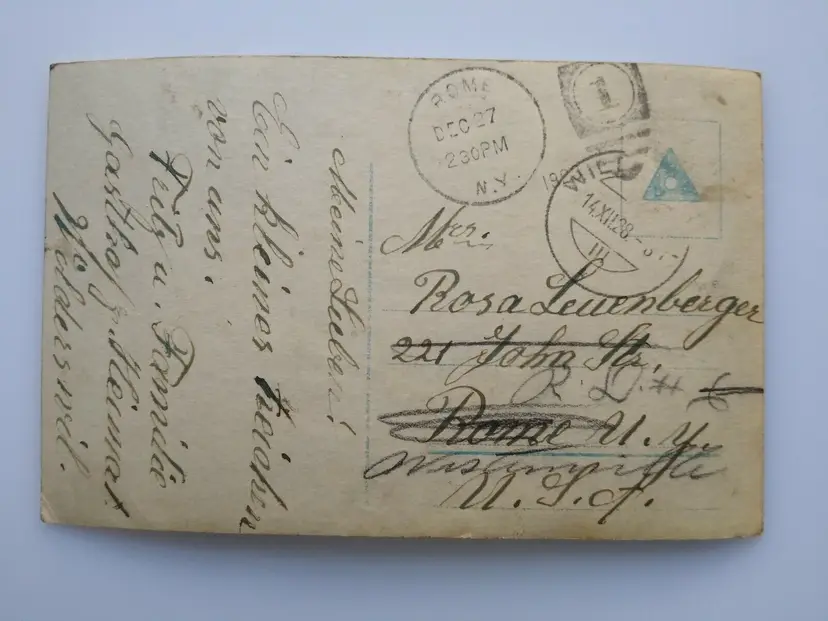 Meine Lieben!
Ein kleines Zeichen
von uns.
Fritz u. Familie
Gasthof z. Heimat
Wilderswil.
ROME
DEC 27
230PM
N.Y.
1
14.XII.28.
III
Mrs.
Rosa Leuenberger
221 John Str.
R. D. #
Rome N. Y.
U. S. A.